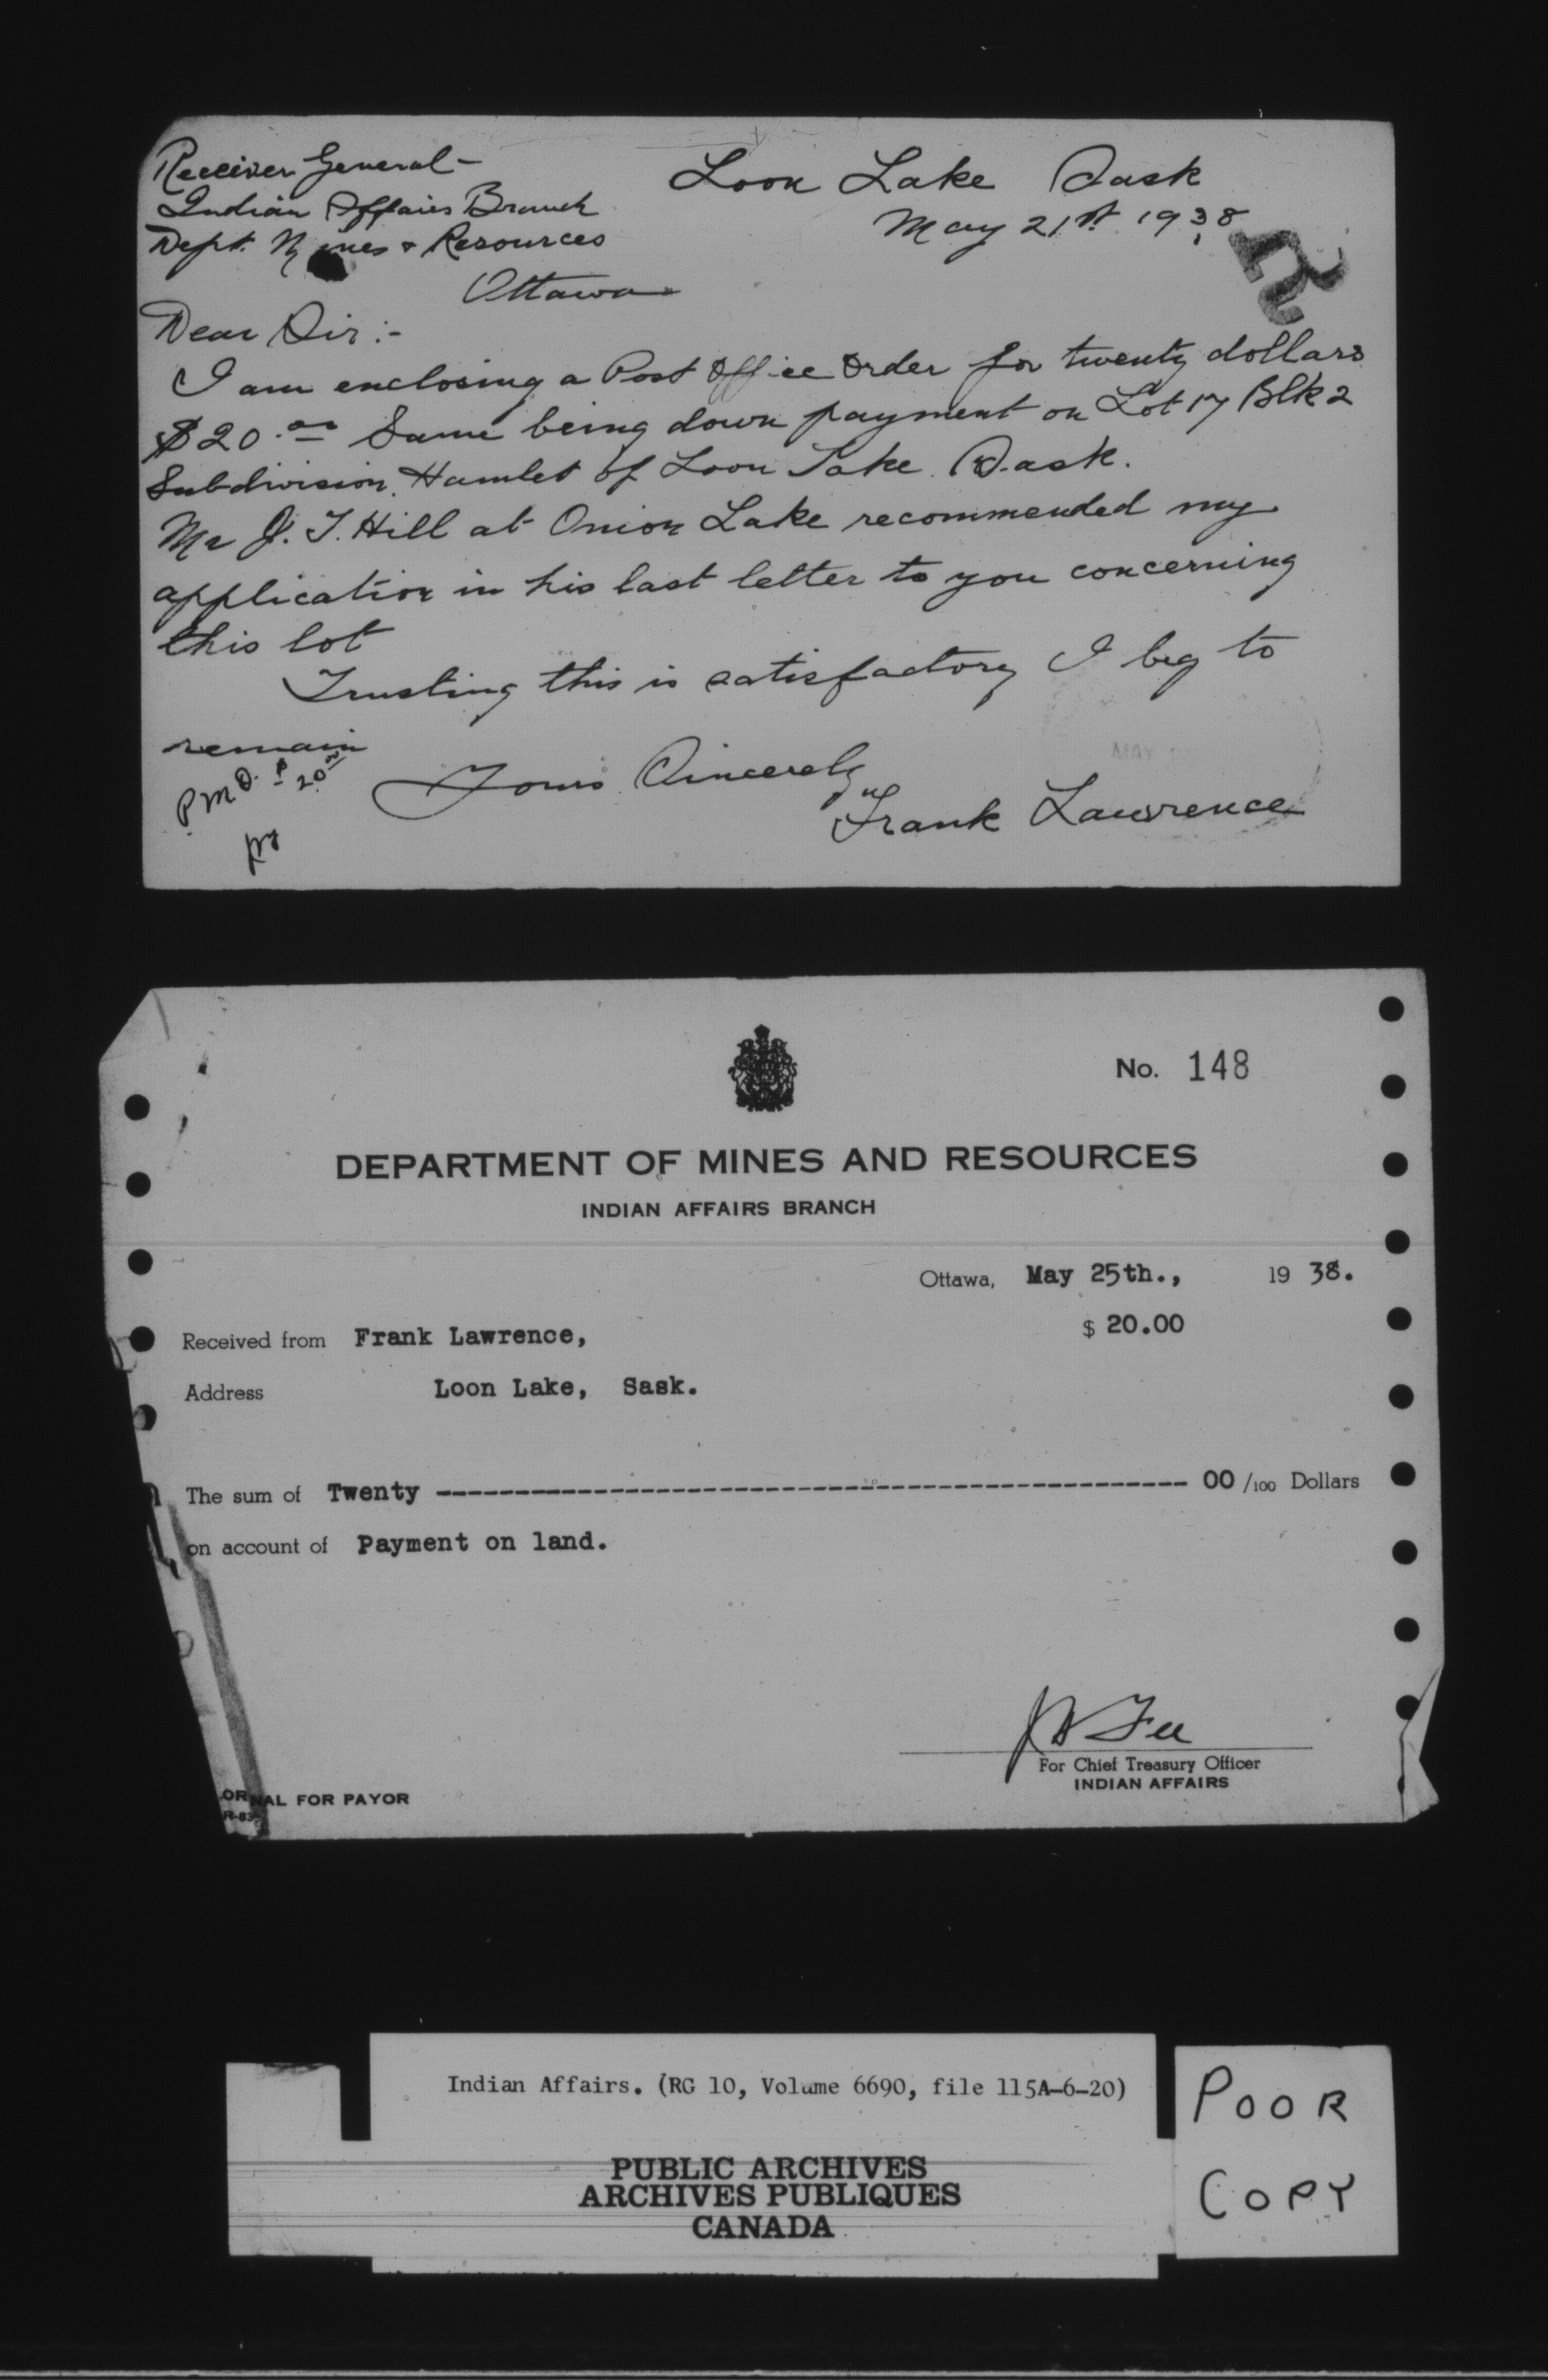 Receiver General-
Indian Affairs Branch
Dept. Mines & Resources
Ottawa
Loon Lake Sask
May 21st. 1938
Dear Sir:-
I am enclosing a Post Office Order for twenty dollars
$20.00 Same being down payment on Lot 17 Blk 2
Subdivision. Hamlet of Loon Lake Sask.
Mr J. T. Hill at Onion Lake recommended my
application in his last letter to you concerning
this lot
Trusting this is satisfactory I beg to
remain
P M O. $20.00
Yours Sincerely
Frank Lawrence
MAY
No. 148
DEPARTMENT OF MINES AND RESOURCES
INDIAN AFFAIRS BRANCH
Ottawa, May 25th., 19 38.
$ 20.00
Received from Frank Lawrence,
Address Loon Lake, Sask.
The sum of Twenty ------------------------------------------------ 00 /100 Dollars
on account of Payment on land.
For Chief Treasury Officer
INDIAN AFFAIRS
NAL FOR PAYOR
Indian Affairs. (RG 10, Volume 6690, file 115A-6-20)
PUBLIC ARCHIVES
ARCHIVES PUBLIQUES
CANADA
POOR
COPY